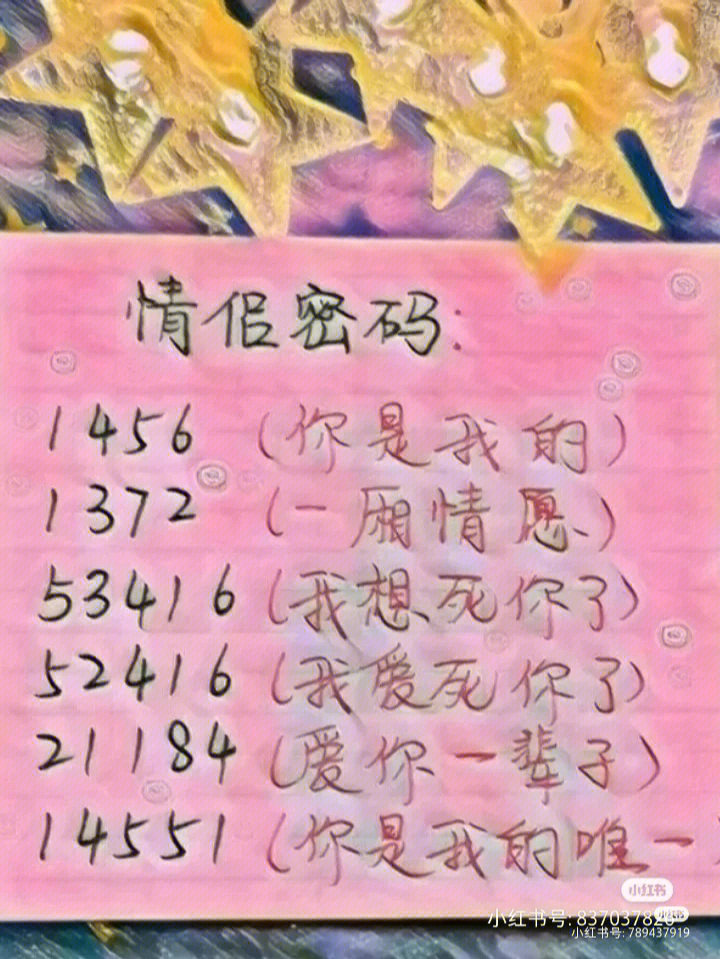 情侣密码:
1456 (你是我的)
1372 (一厢情愿)
53416 (我想死你了)
52416 (我爱死你了)
21184 (爱你一辈子)
14551 (你是我的唯一
小红书
小红书号: 837037826
小红书
小红书号: 789437919